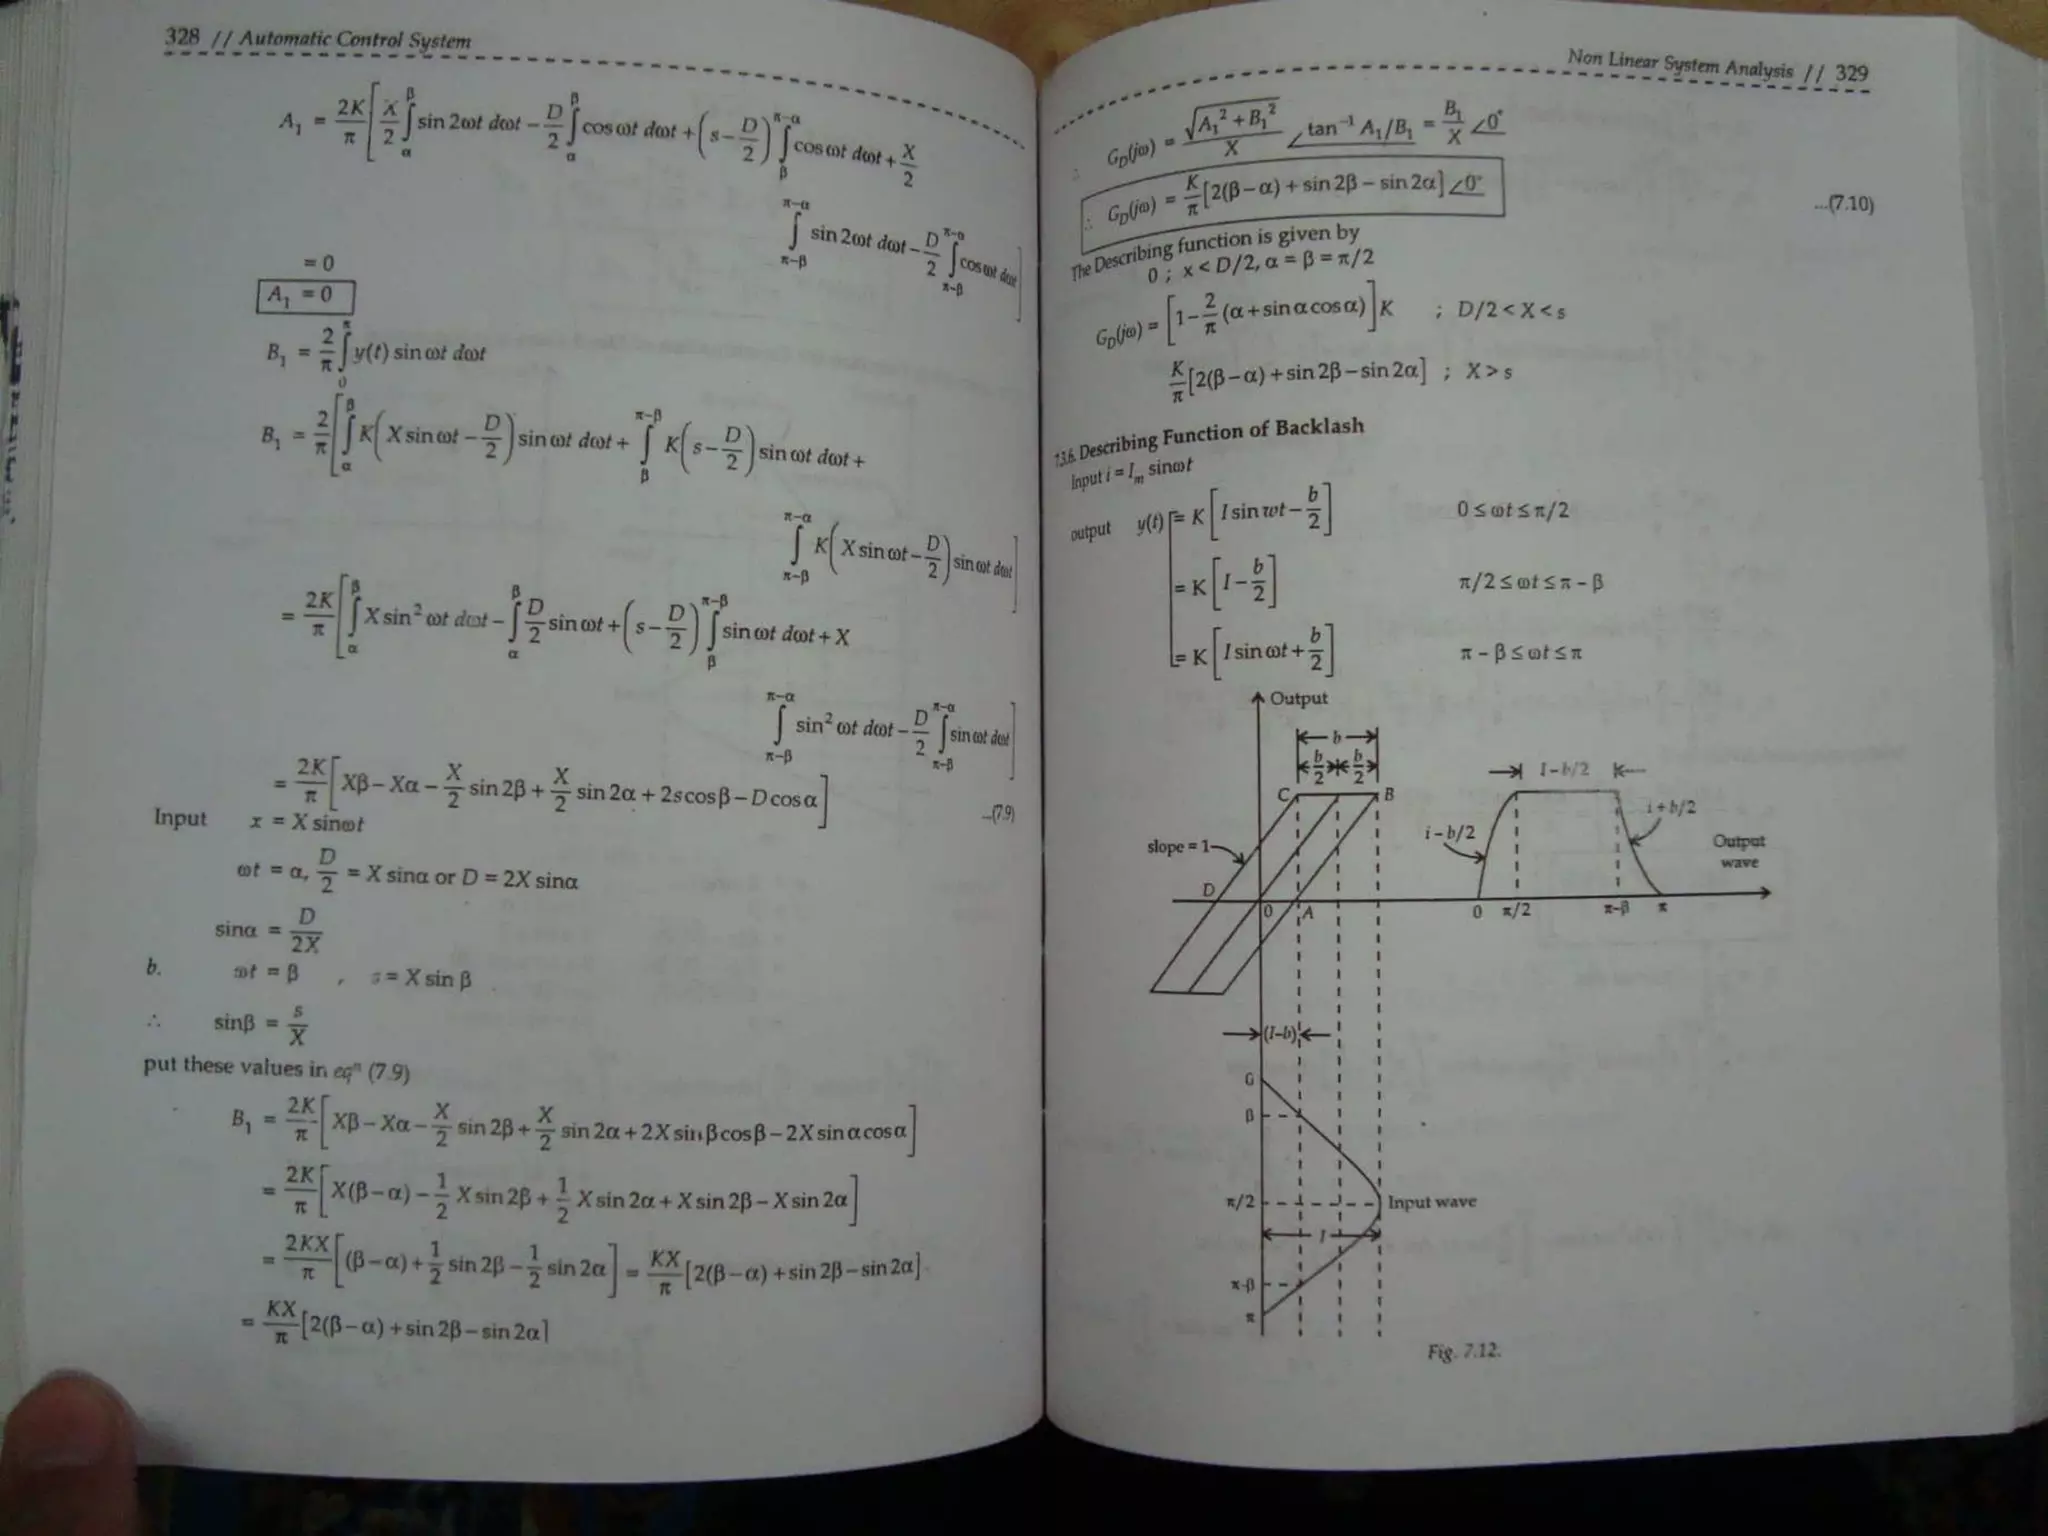 328 // Automatic Control System
A₁ = 2K/π [ X/2 ∫_α^β sin 2ωt dωt − D/2 ∫_α^β cos ωt dωt + (s − D/2) ∫_β^{π−α} cos ωt dωt + X/2
∫_{π−β}^{π−α} sin 2ωt dωt − D/2 ∫_{π−β}^{π−α} cos ωt dωt ]
= 0
A₁ = 0
B₁ = 2/π ∫_0^π y(t) sin ωt dωt
B₁ = 2/π [ ∫_α^β K( X sin ωt − D/2 ) sin ωt dωt + ∫_β^{π−β} K( s − D/2 ) sin ωt dωt +
∫_{π−β}^{π−α} K( X sin ωt − D/2 ) sin ωt dωt ]
= 2K/π [ ∫_α^β X sin² ωt dωt − ∫_α^β D/2 sin ωt + ( s − D/2 ) ∫_β^{π−β} sin ωt dωt + X
∫_{π−β}^{π−α} sin² ωt dωt − D/2 ∫_{π−β}^{π−α} sin ωt dωt ]
= 2K/π [ Xβ − Xα − X/2 sin 2β + X/2 sin 2α + 2s cos β − D cos α ] ...(7.9)
Input x = X sinωt
ωt = α, D/2 = X sinα or D = 2X sinα
sinα = D/2X
b. ωt = β , s = X sin β
∴ sinβ = s/X
put these values in eqⁿ (7.9)
B₁ = 2K/π [ Xβ − Xα − X/2 sin 2β + X/2 sin 2α + 2X sin β cos β − 2X sin α cos α ]
= 2K/π [ X(β − α) − 1/2 X sin 2β + 1/2 X sin 2α + X sin 2β − X sin 2α ]
= 2KX/π [ (β − α) + 1/2 sin 2β − 1/2 sin 2α ] = KX/π [2(β − α) + sin 2β − sin 2α]
= KX/π [2(β − α) + sin 2β − sin 2α]
Non Linear System Analysis // 329
∴ G_D(jω) = √(A₁² + B₁²)/X ∠tan⁻¹ A₁/B₁ = B₁/X ∠0°
∴ G_D(jω) = K/π [2(β − α) + sin 2β − sin 2α] ∠0° ...(7.10)
The Describing function is given by
0 ; x < D/2, α = β = π/2
G_D(jω) = [ 1 − 2/π (α + sin α cos α) ] K ; D/2 < X < s
K/π [2(β − α) + sin 2β − sin 2α] ; X > s
7.3.6. Describing Function of Backlash
Input i = I_m sinωt
output y(t) = K [ I sin wt − b/2 ] 0 ≤ ωt ≤ π/2
= K [ I − b/2 ] π/2 ≤ ωt ≤ π − β
= K [ I sin ωt + b/2 ] π − β ≤ ωt ≤ π
Output
b
b/2 b/2
I−b/2
C B
i+b/2
i−b/2
slope = 1
Output
wave
D
0 A
0 π/2 π−β π
(I−b)
G
β
π/2
Input wave
I
π−β
π
Fig. 7.12.